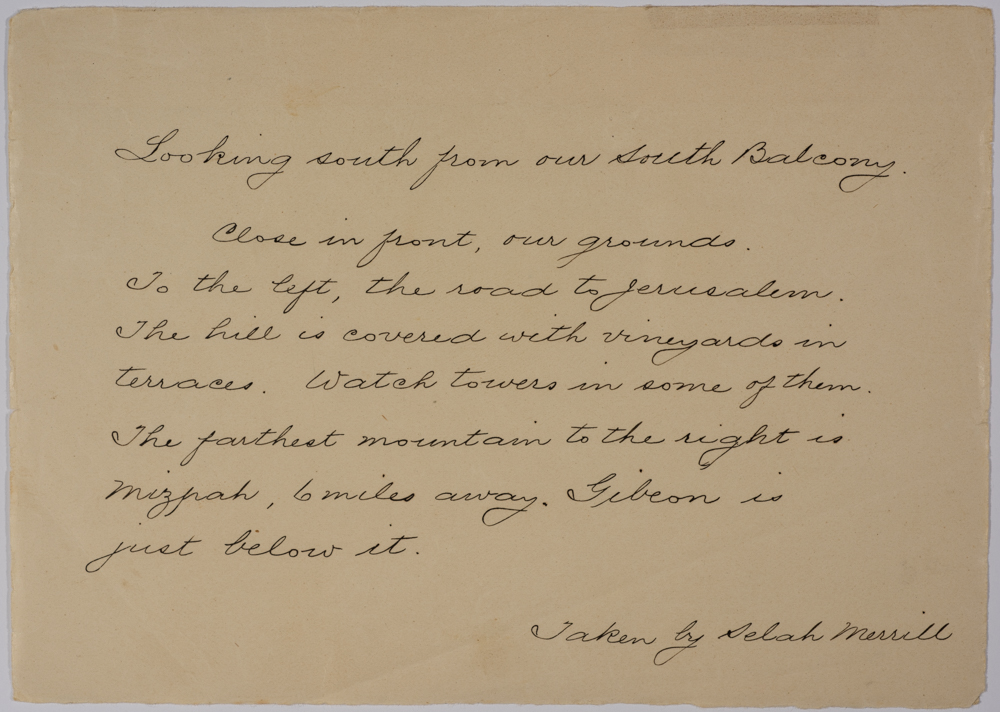 Looking south from our South Balcony.
Close in front, our grounds.
To the left, the road to Jerusalem.
The hill is covered with vineyards in
terraces. Watch towers in some of them.
The farthest mountain to the right is
Mizpah, 6 miles away. Gibeon is
just below it.
Taken by Selah Merrill